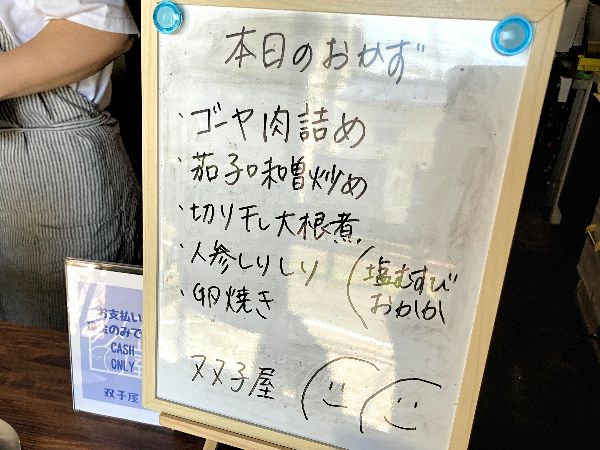 本日のおかず
・ゴーヤ肉詰め
・茄子味噌炒め
・切り干し大根煮
・人参しりしり
・卵焼き
塩むすび
おかか
双子屋
お支払い
現金のみで
CASH
ONLY
双子屋